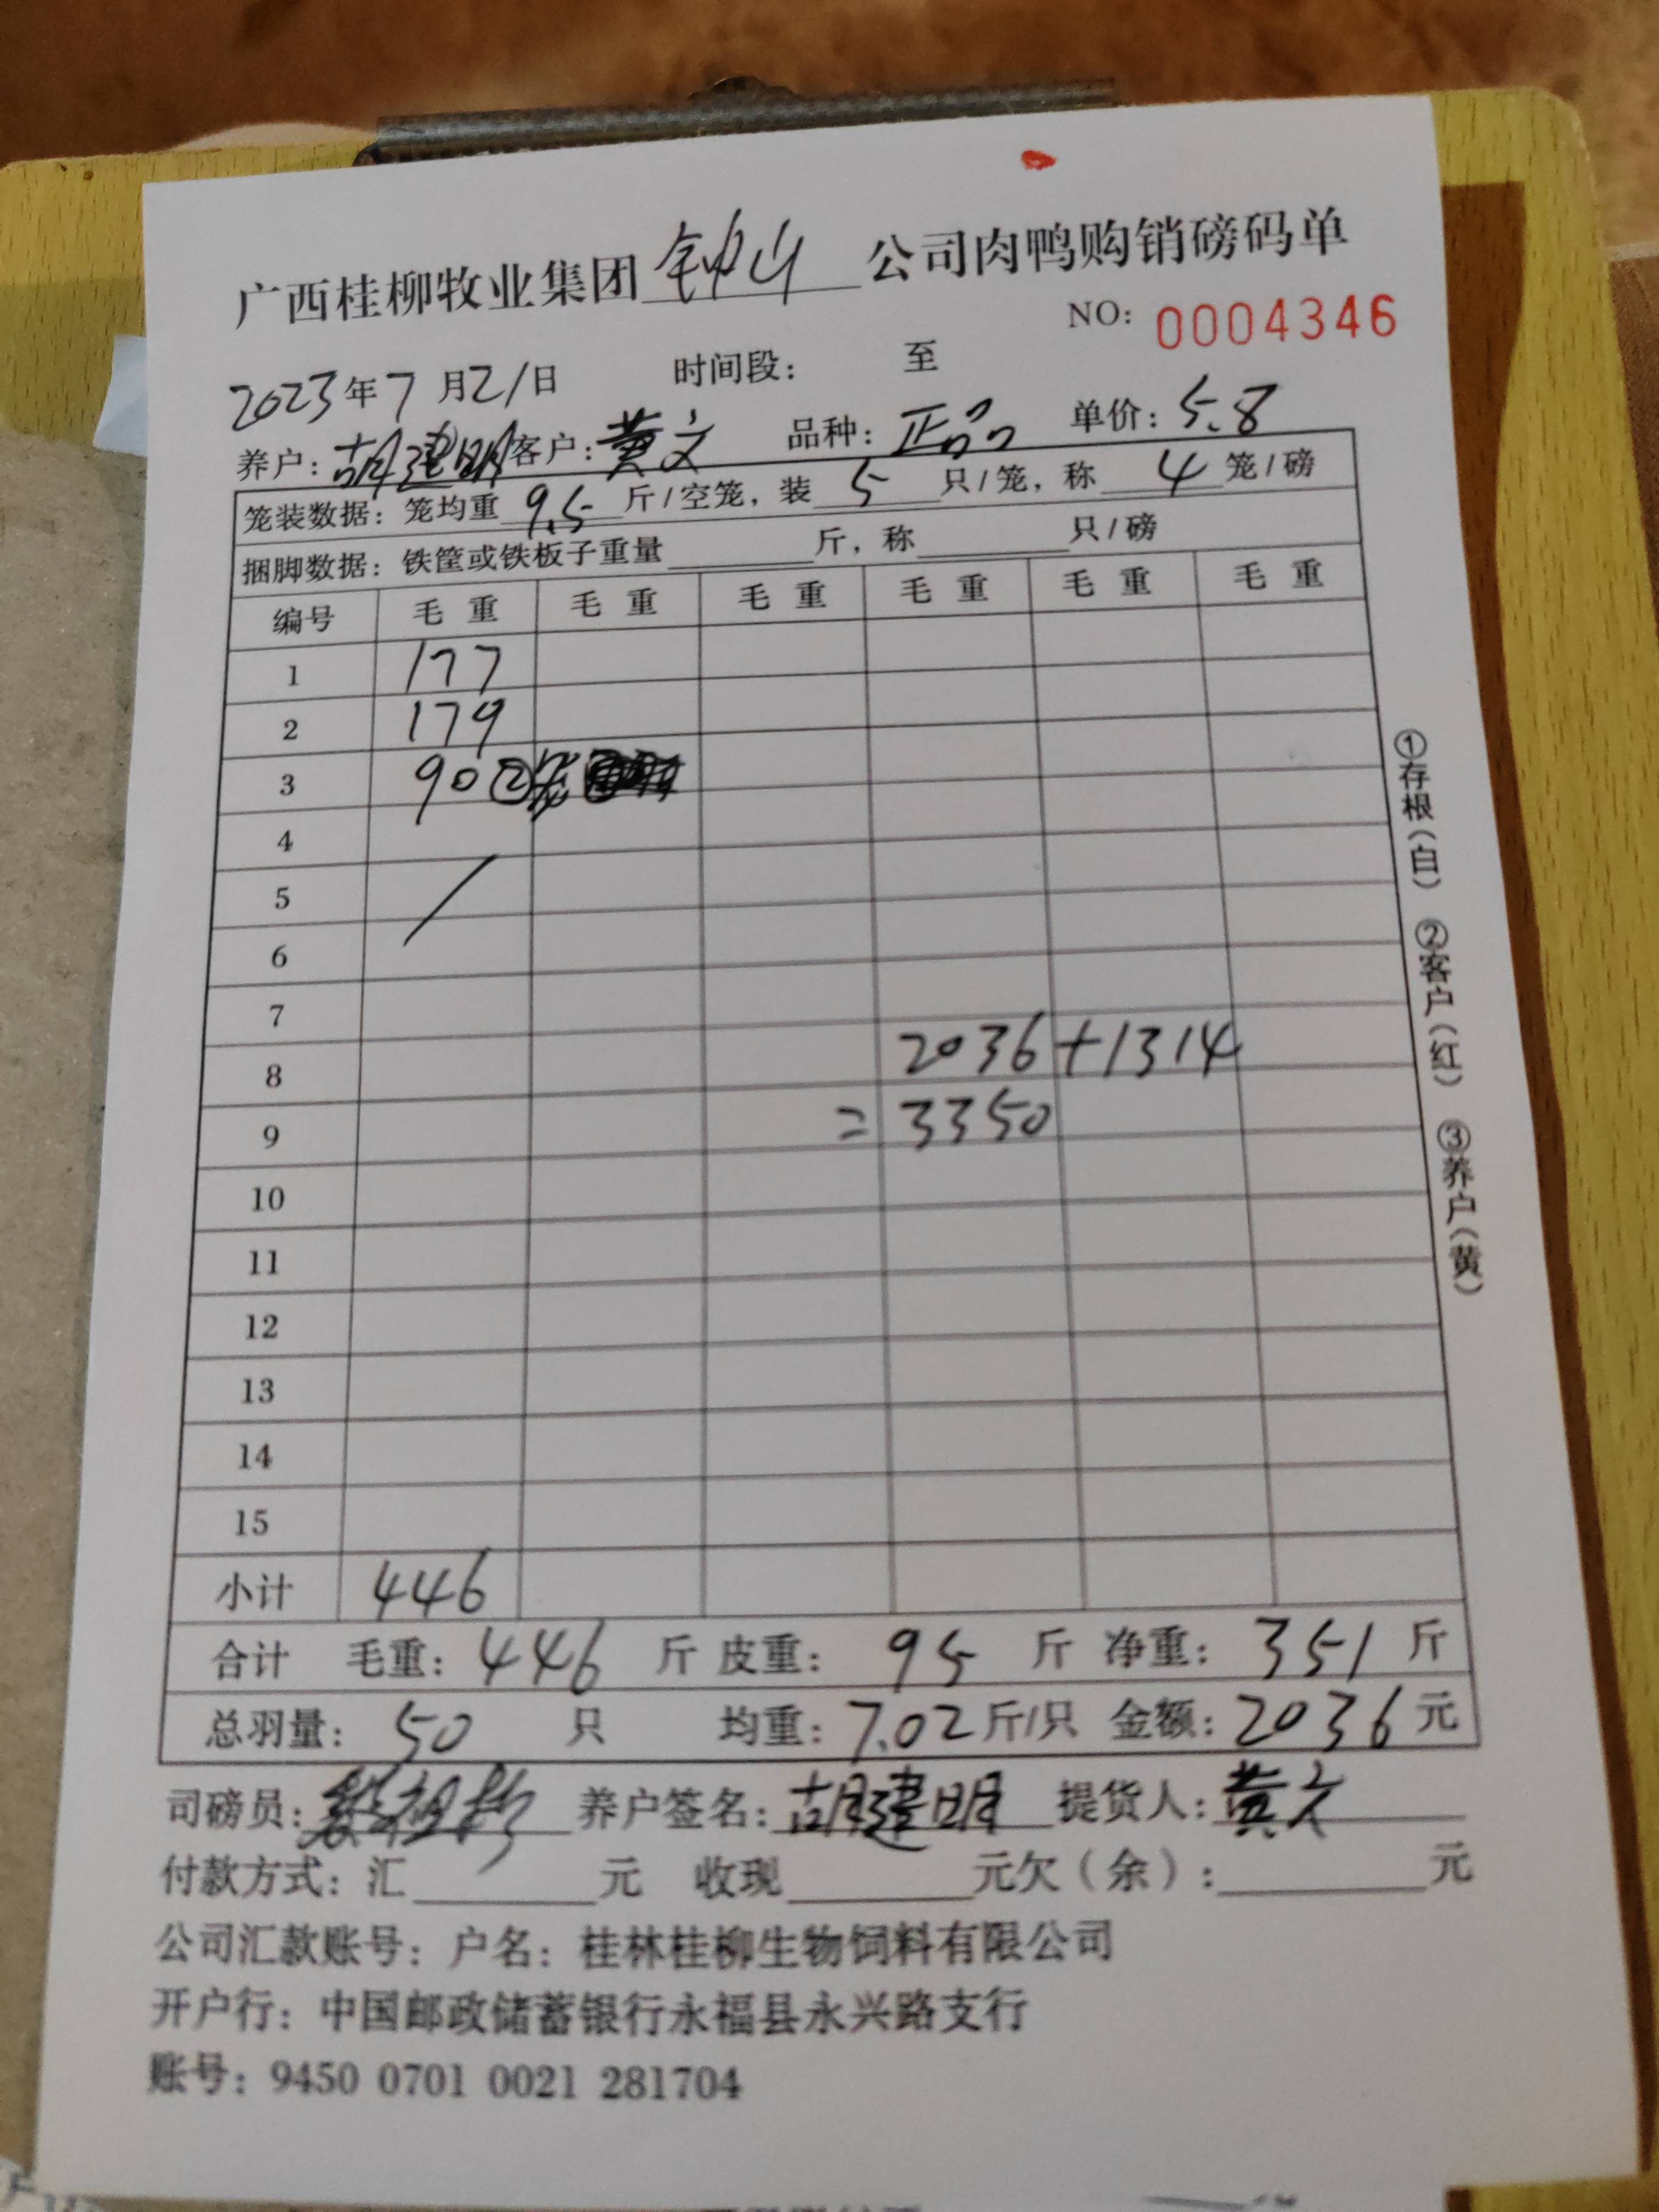 广西桂柳牧业集团钟山公司肉鸭购销磅码单
NO: 0004346
2023年7月21日 时间段: 至
养户: 胡建明 客户: 黄文 品种: 正品 单价: 5.8
笼装数据: 笼均重 9.5 斤/空笼, 装 5 只/笼, 称 4 笼/磅
捆脚数据: 铁筐或铁板子重量 斤, 称 只/磅
编号 毛重 毛重 毛重 毛重 毛重 毛重
1 177
2 179
3 90 ②笼
4
5 /
6
7
8 2036+1314
9 =3350
10
11
12
13
14
15
小计 446
合计 毛重: 446 斤 皮重: 95 斤 净重: 351 斤
总羽量: 50 只 均重: 7.02 斤/只 金额: 2036 元
司磅员: 养户签名: 胡建明 提货人: 黄文
付款方式: 汇 元 收现 元欠(余): 元
公司汇款账号: 户名: 桂林桂柳生物饲料有限公司
开户行: 中国邮政储蓄银行永福县永兴路支行
账号: 9450 0701 0021 281704
①存根(白) ②客户(红) ③养户(黄)